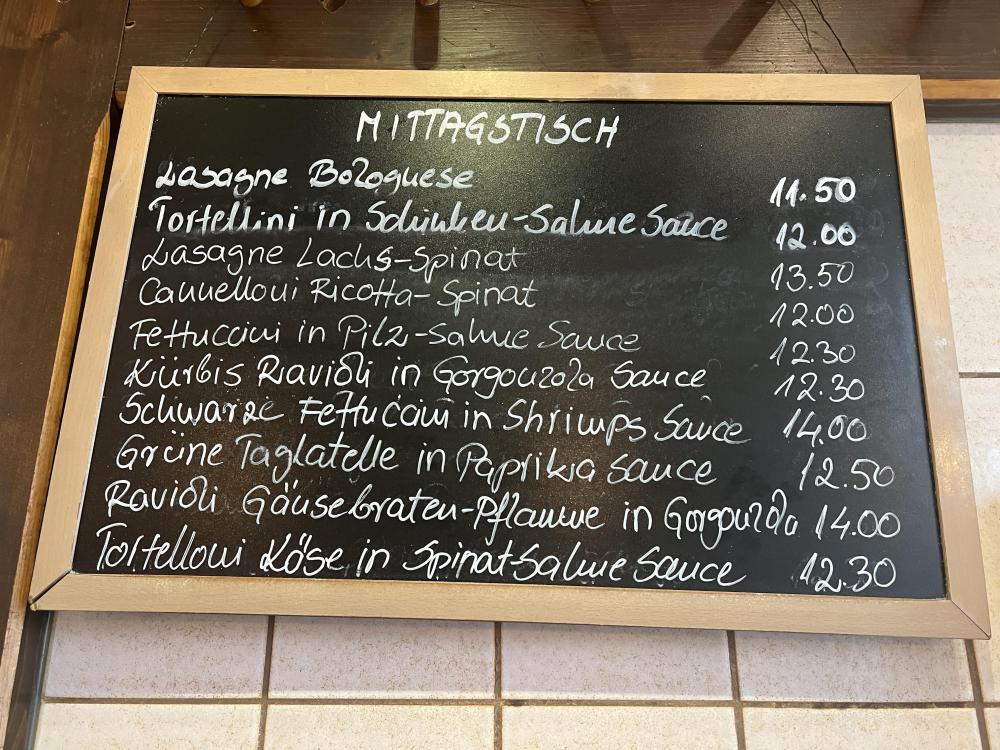 MITTAGSTISCH
Lasagne Bolognese 11.50
Tortellini in Schinken-Sahne Sauce 12.00
Lasagne Lachs-Spinat 13.50
Cannelloni Ricotta-Spinat 12.00
Fettuccini in Pilz-Sahne Sauce 12.30
Kürbis Ravioli in Gorgonzola Sauce 12.30
Schwarze Fettuccini in Shrimps Sauce 14.00
Grüne Taglatelle in Paprika Sauce 12.50
Ravioli Gänsebraten-Pflaume in Gorgonzola 14.00
Tortelloni Käse in Spinat-Sahne Sauce 12.30